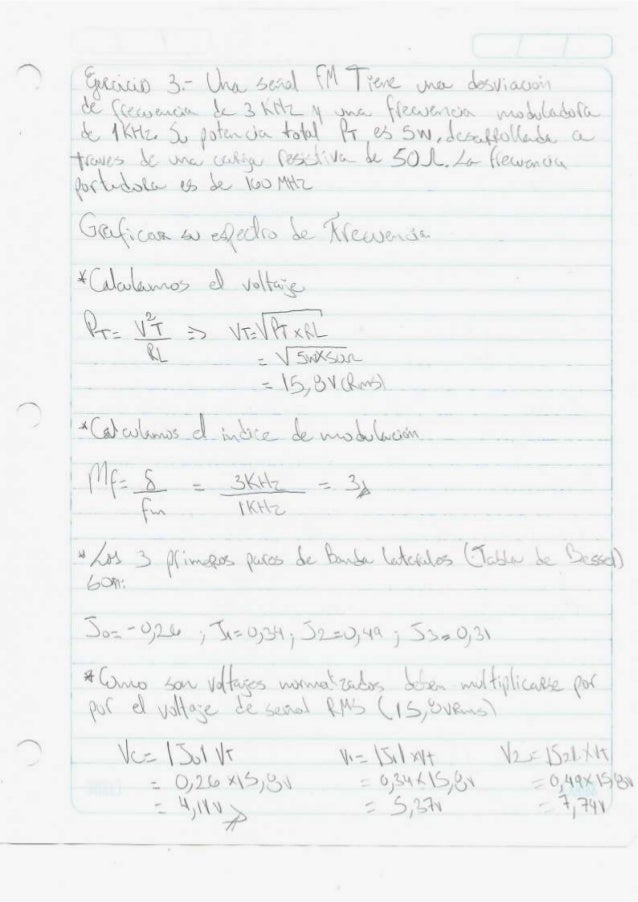 Ejercicio 3.- Una señal FM Tiene una desviación
de frecuencia de 3 KHz y una frecuencia moduladora
de 1KHz. Su potencia total PT es 5w, desarrollada a
traves de una carga resistiva de 50Ω. La frecuencia
portadora es de 160 MHz
Graficar su espectro de Frecuencia
*Calculamos el voltaje
PT= V²T / RL => VT=√PT x RL
= √5wx50Ω
= 15,8V(Rms)
*Calculamos el indice de modulación
Mf= δ / fm = 3KHz / 1KHz = 3
* Los 3 primeros pares de Banda laterales (Tabla de Bessel)
son:
J0=-0,26 ; J1=0,34; J2=0,49 ; J3=0,31
* Como son voltajes normatizados deben multiplicarse por
por el voltaje de señal RMS (15,8VRms)
Vc= |J0| VT V1= |J1| xVt V2= |J2|.xVt
= 0,26 x15,8V = 0,34x15,8v =0,49x15,8v
= 4,11v = 5,37v = 7,74v